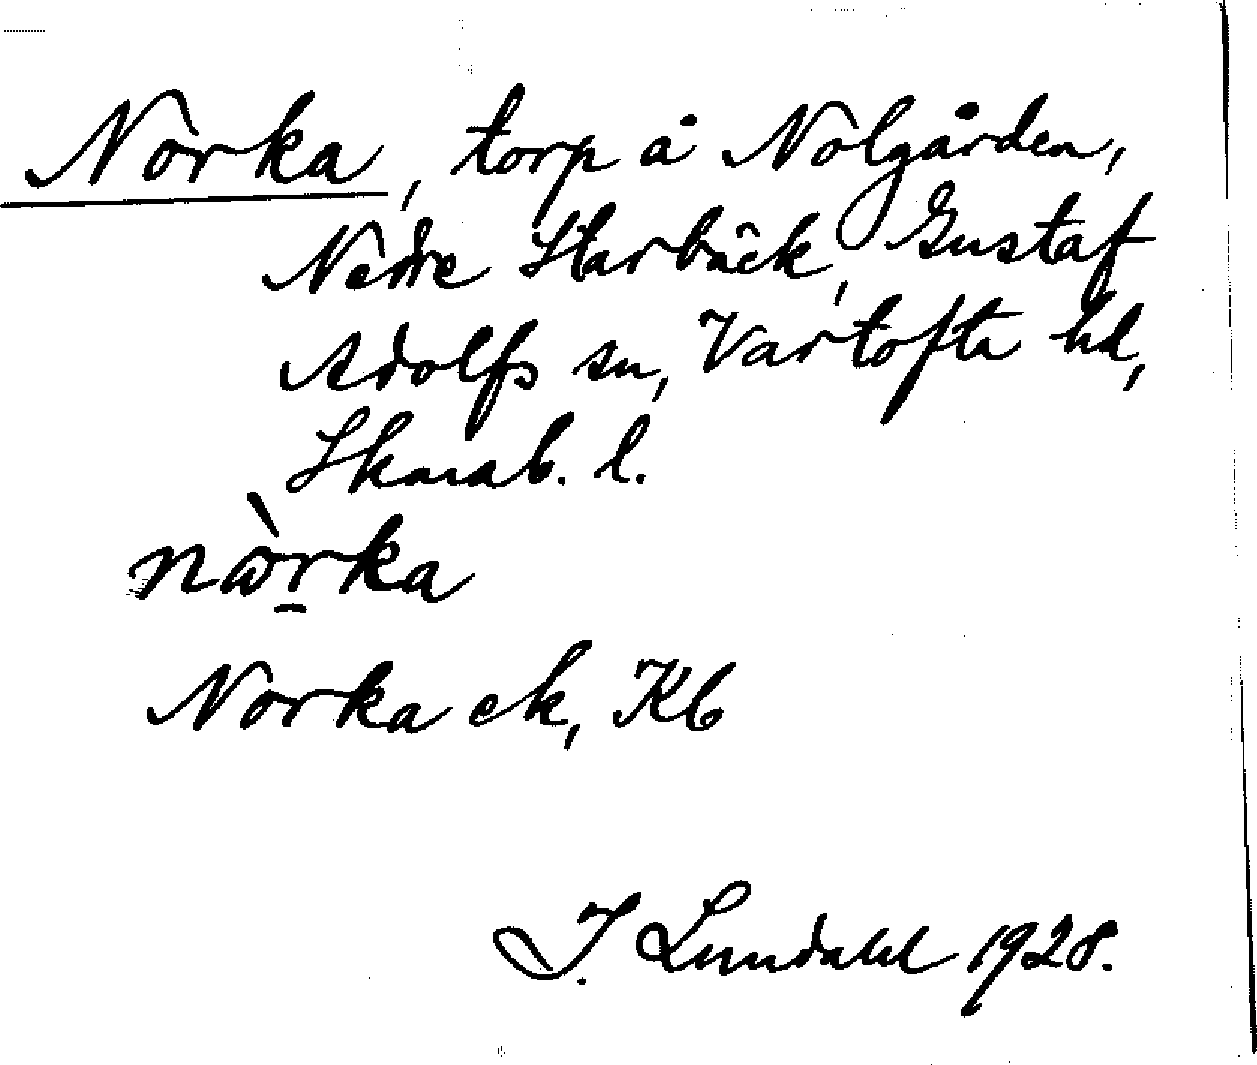 Norka, torp å Nolgården,
Nedre Harbäck, Gustaf
Adolfs sn, Vartofta hd,
Skarab. l.
nꞷ̀ṟka
Norka ek, Kb
I. Lundahl 1928.